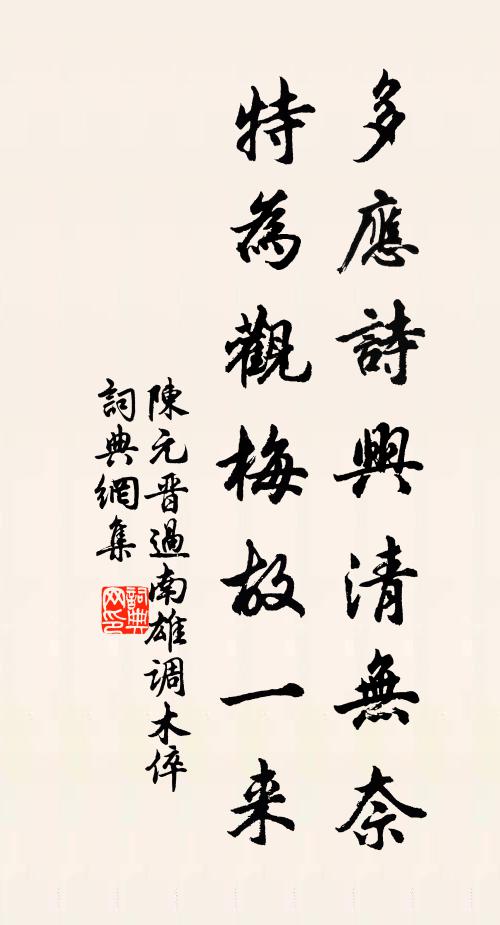 多應詩興清無奈
特為觀梅故一来
陳元晋過南雄調木倅
詞典網集
詞典
网印